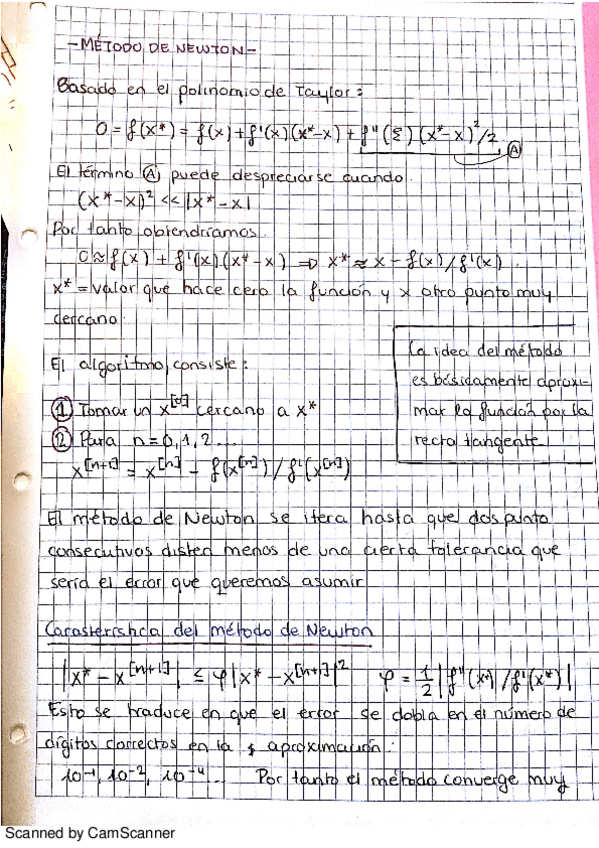 - MÉTODO DE NEWTON -
Basado en el polinomio de Taylor:
0 = f(x*) = f(x) + f'(x)(x*-x) + f''(Σ)(x*-x)²/2 Ⓐ
El término Ⓐ puede despreciarse cuando
(x*-x)² << |x*-x|
Por tanto obtendríamos.
0 ≈ f(x) + f'(x)(x*-x) ⇒ x* ≈ x - f(x)/f'(x).
x* = valor que hace cero la función y x otro punto muy
cercano.
El algoritmo consiste:
① Tomar un x^[0] cercano a x*
② Para n=0,1,2...
x^[n+1] = x^[n] - f(x^[n])/f'(x^[n])
La idea del método
es básicamente aproxi-
mar la función por la
recta tangente
El método de Newton se itera hasta que dos punto
consecutivos disten menos de una cierta tolerancia que
sería el error que queremos asumir
Carasterística del método de Newton
|x* - x^[n+1]| ≤ φ|x* - x^[n+1]|² φ = 1/2 |f''(x*)/f'(x*)|
Esto se traduce en que el error se dobla en el número de
dígitos correctos en la aproximación:
10⁻¹, 10⁻², 10⁻⁴... Por tanto el método converge muy
Scanned by CamScanner